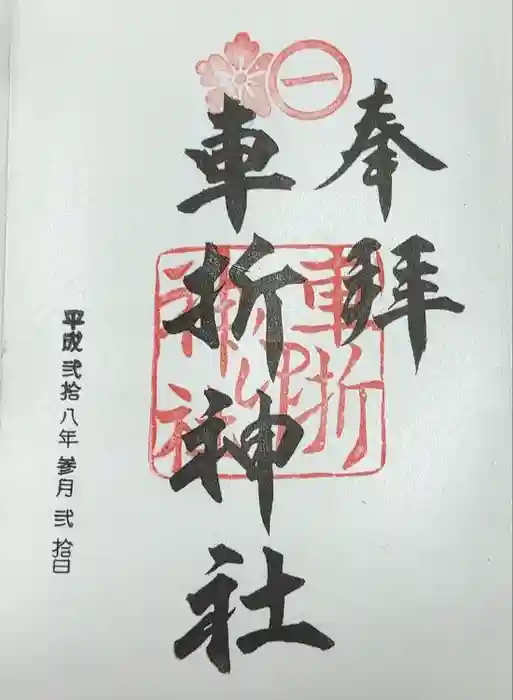 奉拝
一
車折神社
車折
神社
平成弐拾八年参月弐拾日